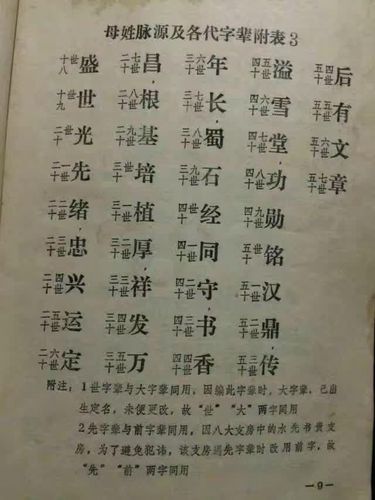 母姓脉源及各代字辈附表3
十八世盛
十九世世
二十世光
二十一世先
二十二世绪
二十三世忠
二十四世兴
二十五世运
二十六世定
二十七世昌
二十八世根
二十九世基
三十世培
三十一世植
三十二世厚
三十三世祥
三十四世发
三十五世万
三十六世年
三十七世长
三十八世蜀
三十九世石
四十世经
四十一世同
四十二世守
四十三世书
四十四世香
四十五世溢
四十六世雪
四十七世堂
四十八世功
四十九世勋
五十世铭
五十一世汉
五十二世鼎
五十三世传
五十四世后
五十五世有
五十六世文
五十七世章
附注：1世字辈与大字辈同用，因编此字辈时，大字辈，已出
生定名，未便更改，故“世”“大”两字同用
2先字辈与前字辈同用，因八大支房中的水先书贵支
房，为了避免犯讳，该支房遇先字辈时改用前字，故
“先”“前”两字同用
—9—